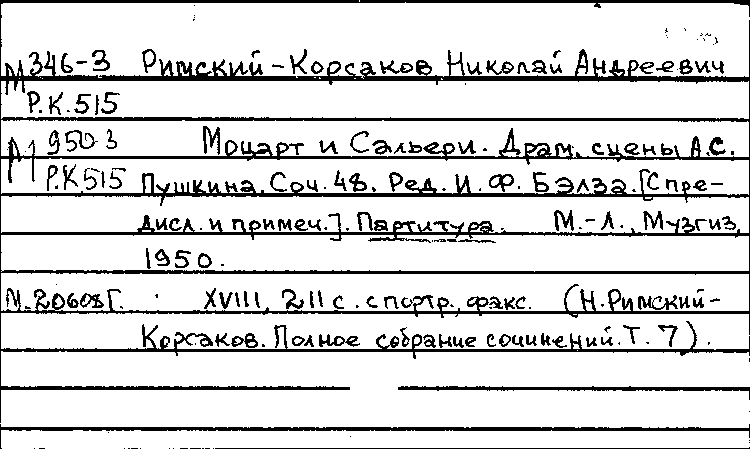 М 346-3 Римский-Корсаков, Николай Андреевич
Р.К.515
М1 9503 Моцарт и Сальери. Драм. сцены А.С.
Р.К.515 Пушкина. Соч. 48. Ред. И. Ф. Бэлза. [С пре-
дисл. и примеч.]. Партитура. М.-Л., Музгиз,
1950.
М.20608Г. XVIII, 211 с. с портр., факс. (Н. Римский-
Корсаков. Полное собрание сочинений. Т. 7).